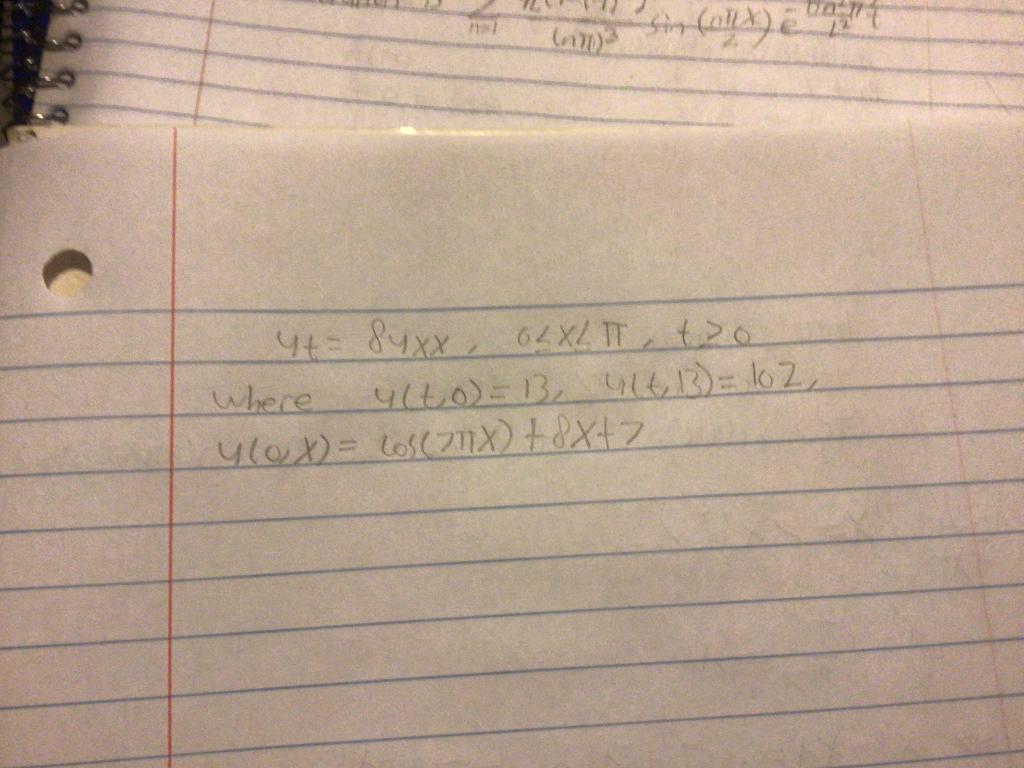 ∑ n=1 (nπ)³ sin (nπx/2) e
ut = 8uxx, 0≤x≤π, t≥0
where u(t,0)=13, u(t,13)=102,
u(0,x)= cos(7πx)+8x+7